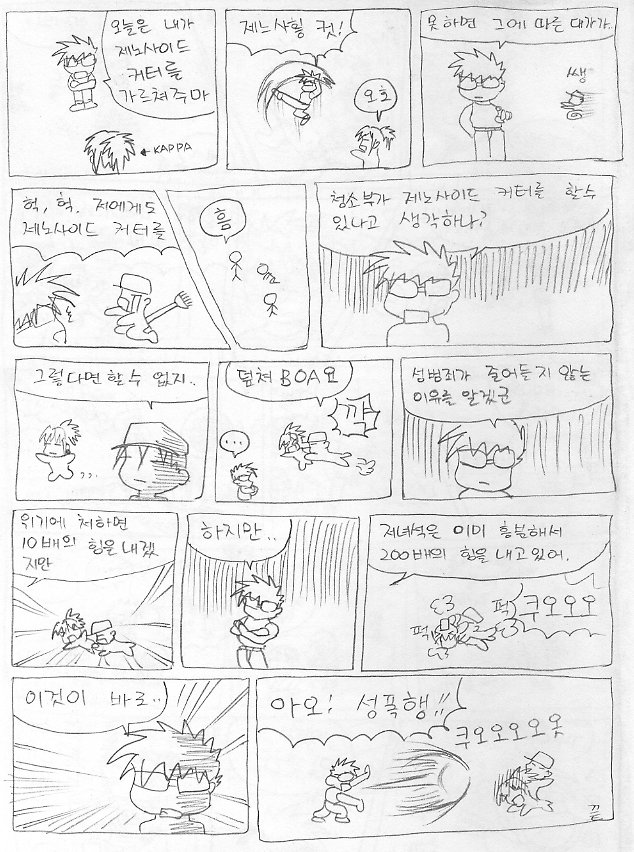 오늘은 내가
제노사이드
커터를
가르쳐주마
←KAPPA
제노사힝 컷!
오호
못하면 그에 따른 대가가.
쌩
헉, 헉. 저에게도
제노사이드 커터를
흠
청소부가 제노사이드 커터를 할수
있다고 생각하나?
그렇다면 할 수 없지..
???
덮쳐 BOA요
꺅
...
성범죄가 줄어들지 않는
이유를 알겠군
위기에 처하면
10배의 힘을 내겠
지만
하지만..
저녀석은 이미 흥분해서
200배의 힘을 내고 있어.
퍽
퍽
쿠오오오
이것이 바로..
아오! 성폭행!!
쿠오오오오옷
끝